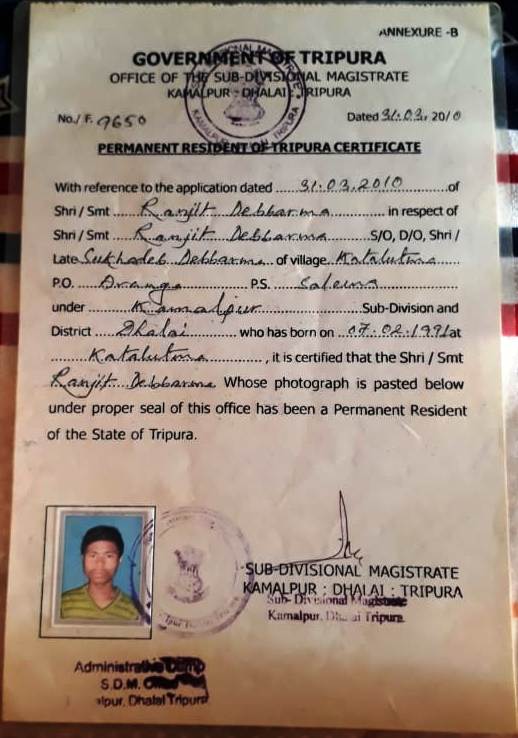 ANNEXURE -B
GOVERNMENT OF TRIPURA
OFFICE OF THE SUB-DIVISIONAL MAGISTRATE
KAMALPUR : DHALAI : TRIPURA
No./ F. 9650 Dated 31.03.2010
PERMANENT RESIDENT OF TRIPURA CERTIFICATE
With reference to the application dated ......31.03.2010......of
Shri / Smt ......Ranjit Debbarma...... in respect of
Shri / Smt ......Ranjit Debbarma......S/O, D/O, Shri /
Late Sukhadeb Debbarma of village. Katalutma
P.O. ......Aranga...... P.S. Salema
under ......Kamalpur......Sub-Division and
District ......Dhalai...... who has born on ..07.02.1991 at
......Katalutma......, it is certified that the Shri / Smt
Ranjit Debbarma Whose photograph is pasted below
under proper seal of this office has been a Permanent Resident
of the State of Tripura.
SUB-DIVISIONAL MAGISTRATE
KAMALPUR : DHALAI : TRIPURA
Sub- Divisional Magistrate
Kamalpur, Tripura
Administrative Camp
S.D.M.
alpur, Dhalai Tripura